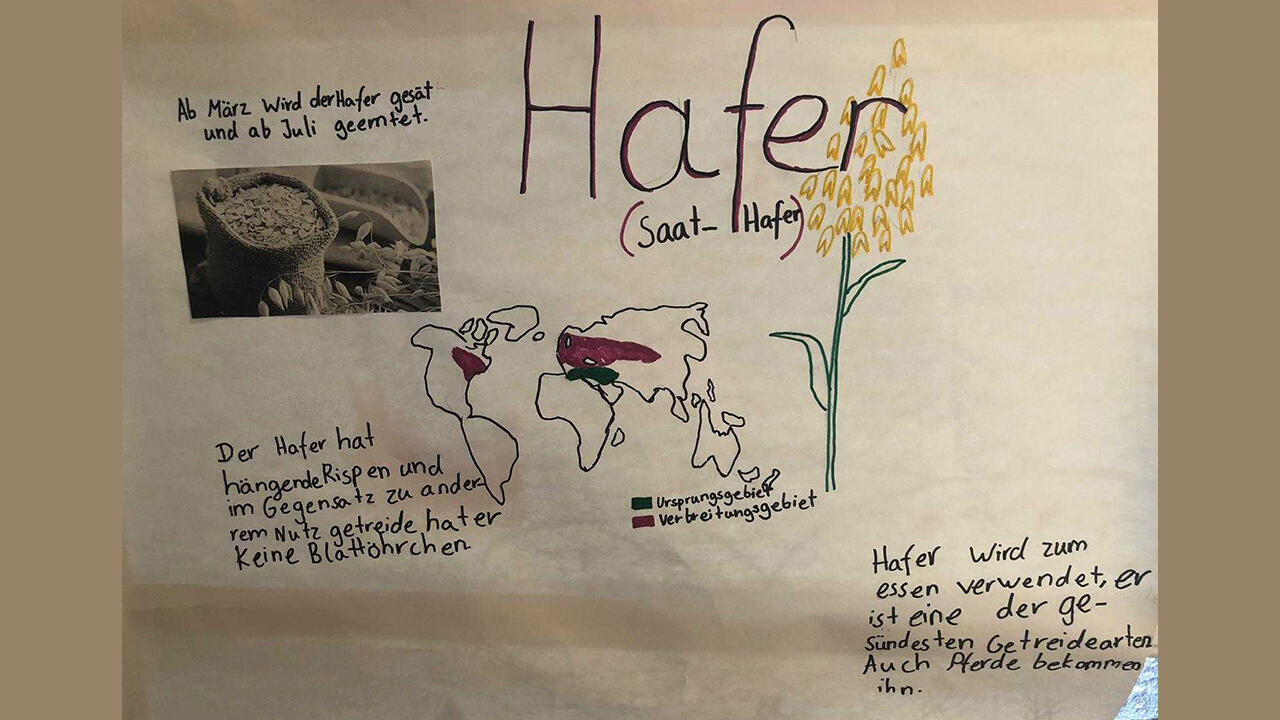 Hafer
(Saat-Hafer)
Ab März wird der Hafer gesät
und ab Juli geerntet.
Der Hafer hat
hängende Rispen und
im Gegensatz zu ander
rem Nutz getreide hat er
keine Blattöhrchen
Ursprungsgebiet
Verbreitungsgebiet
Hafer wird zum
essen verwendet, er
ist eine der ge-
sündesten Getreidearten
Auch Pferde bekommen
ihn.